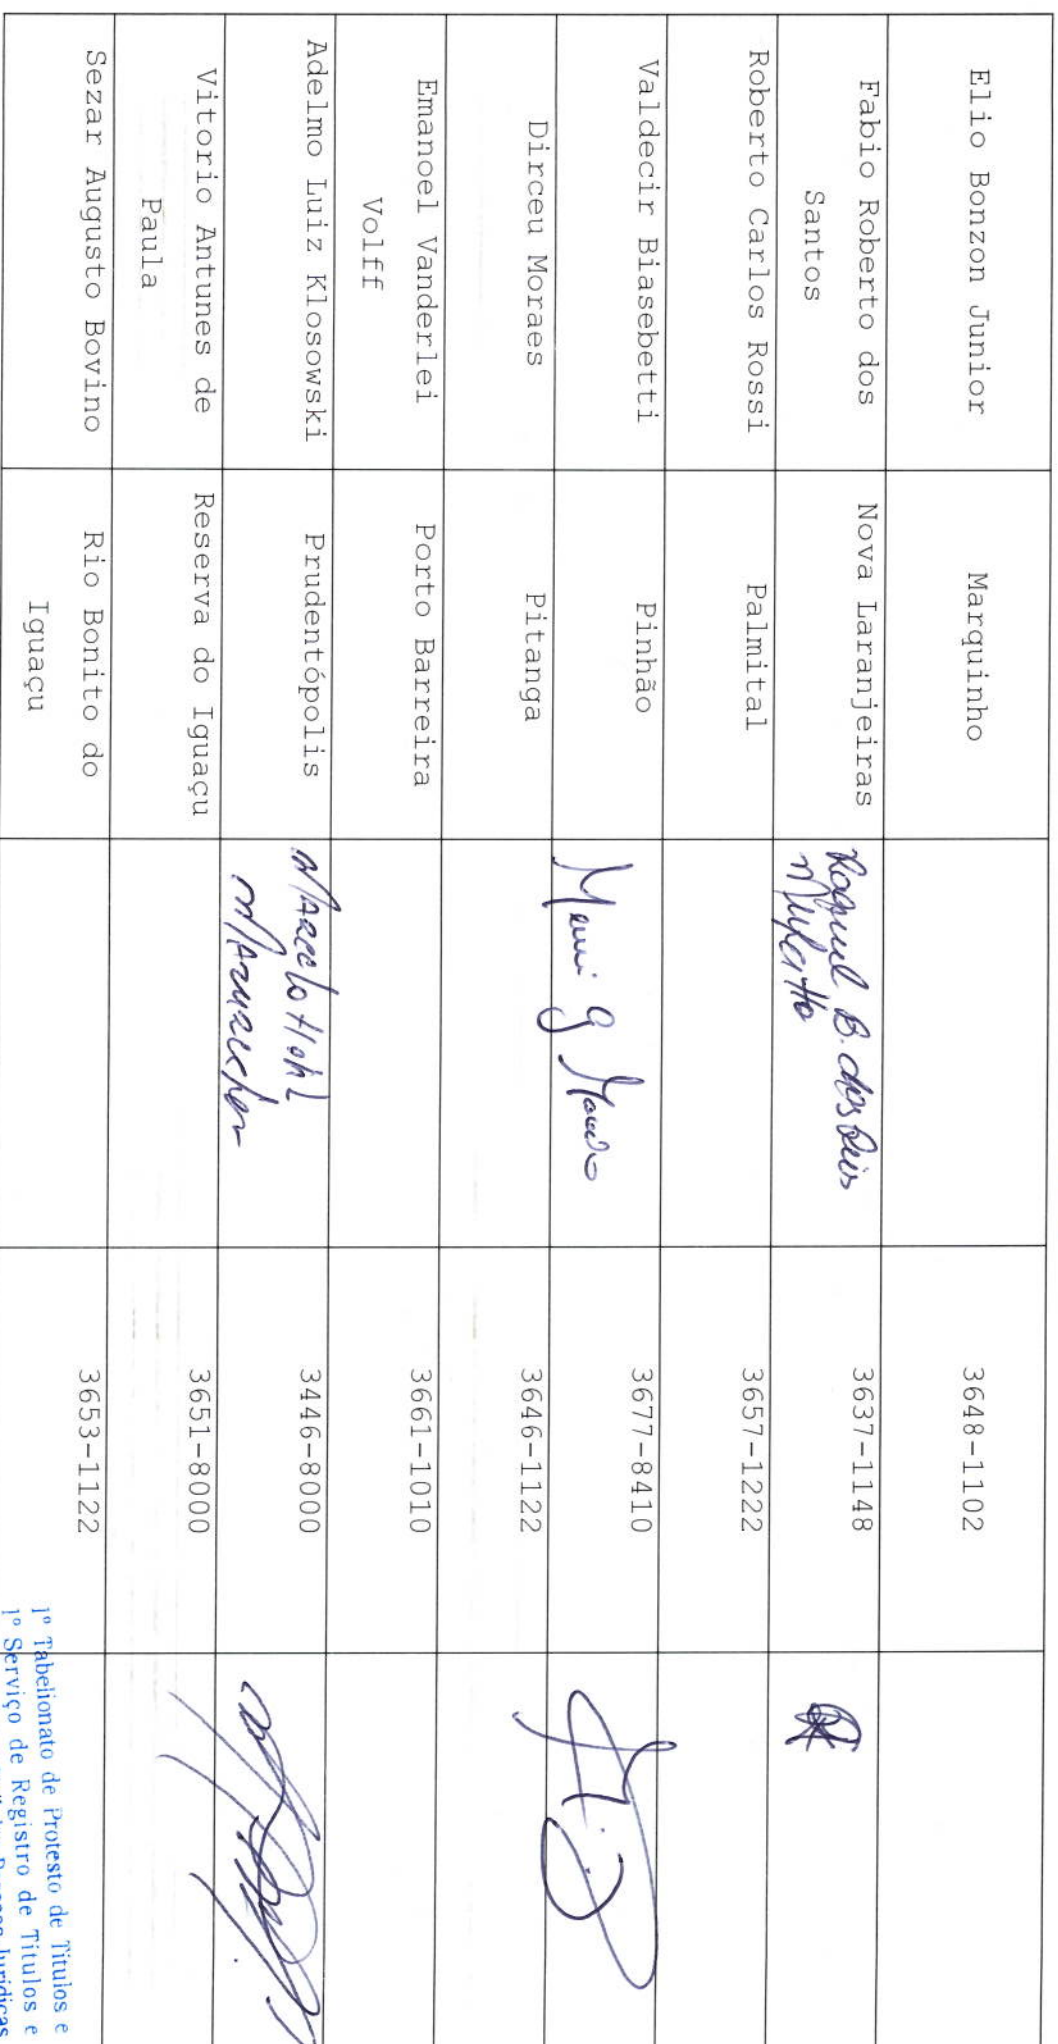 Elio Bonzon Junior Marquinho 3648-1102
Fabio Roberto dos Nova Laranjeiras Raquel B. dos Reis 3637-1148
Santos
Roberto Carlos Rossi Palmital 3657-1222
Valdecir Biasebetti Pinhão 3677-8410
Dirceu Moraes Pitanga 3646-1122
Emanoel Vanderlei Porto Barreira 3661-1010
Volff
Adelmo Luiz Klosowski Prudentópolis Marcelo Hohl 3446-8000
Mazurechen
Vitorio Antunes de Reserva do Iguaçu 3651-8000
Paula
Sezar Augusto Bovino Rio Bonito do 3653-1122
Iguaçu
1º Tabelionato de Protesto de Titulos e
1º Serviço de Registro de Titulos e
Pessoas Juridicas